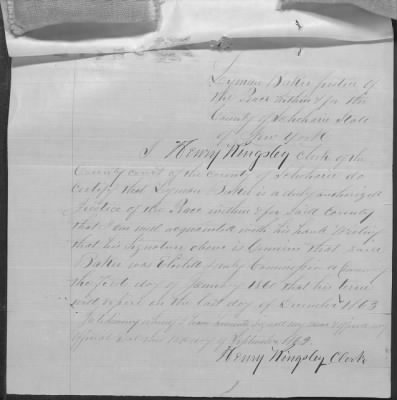 Lyman Baker Justice of
the Peace within & for the
County of Schoharie State
of New York
I Henry Kingsley Clerk of the
County court of the county of Schoharie do
certify that Lyman Baker is a duly authorized
Justice of the Peace within & for said County
that I am well acquainted with his hand writing
that his signature above is Genuine that said
Baker was Elected & duly Commission
the first day of January 1860 that his term
will expire on the last day of December 1863
In testimony whereof I have hereunto set my
official seal this day of September 1862.
Henry Kingsley Clerk